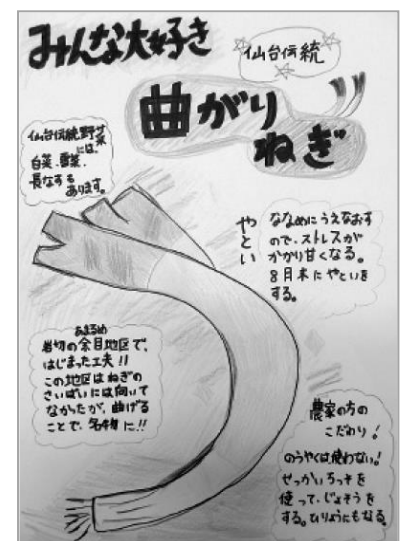 みんな大好き
仙台伝統
曲がり
ねぎ
仙台伝統野菜
には、
白菜、雪菜、
長なすも
あります。
やとい
ななめにうえなおす
ので、ストレスが
かかり甘くなる。
8月末にやといを
する。
あまるめ
岩切の余目地区で、
はじまった工夫!!
この地区はねぎの
さいばいには向いて
なかったが、曲げる
ことで、名物に!!
農家の方の
こだわり!
のうやくは使わない!
せっかいちっそを
使って、じょそうを
する。ひりょうにもなる。